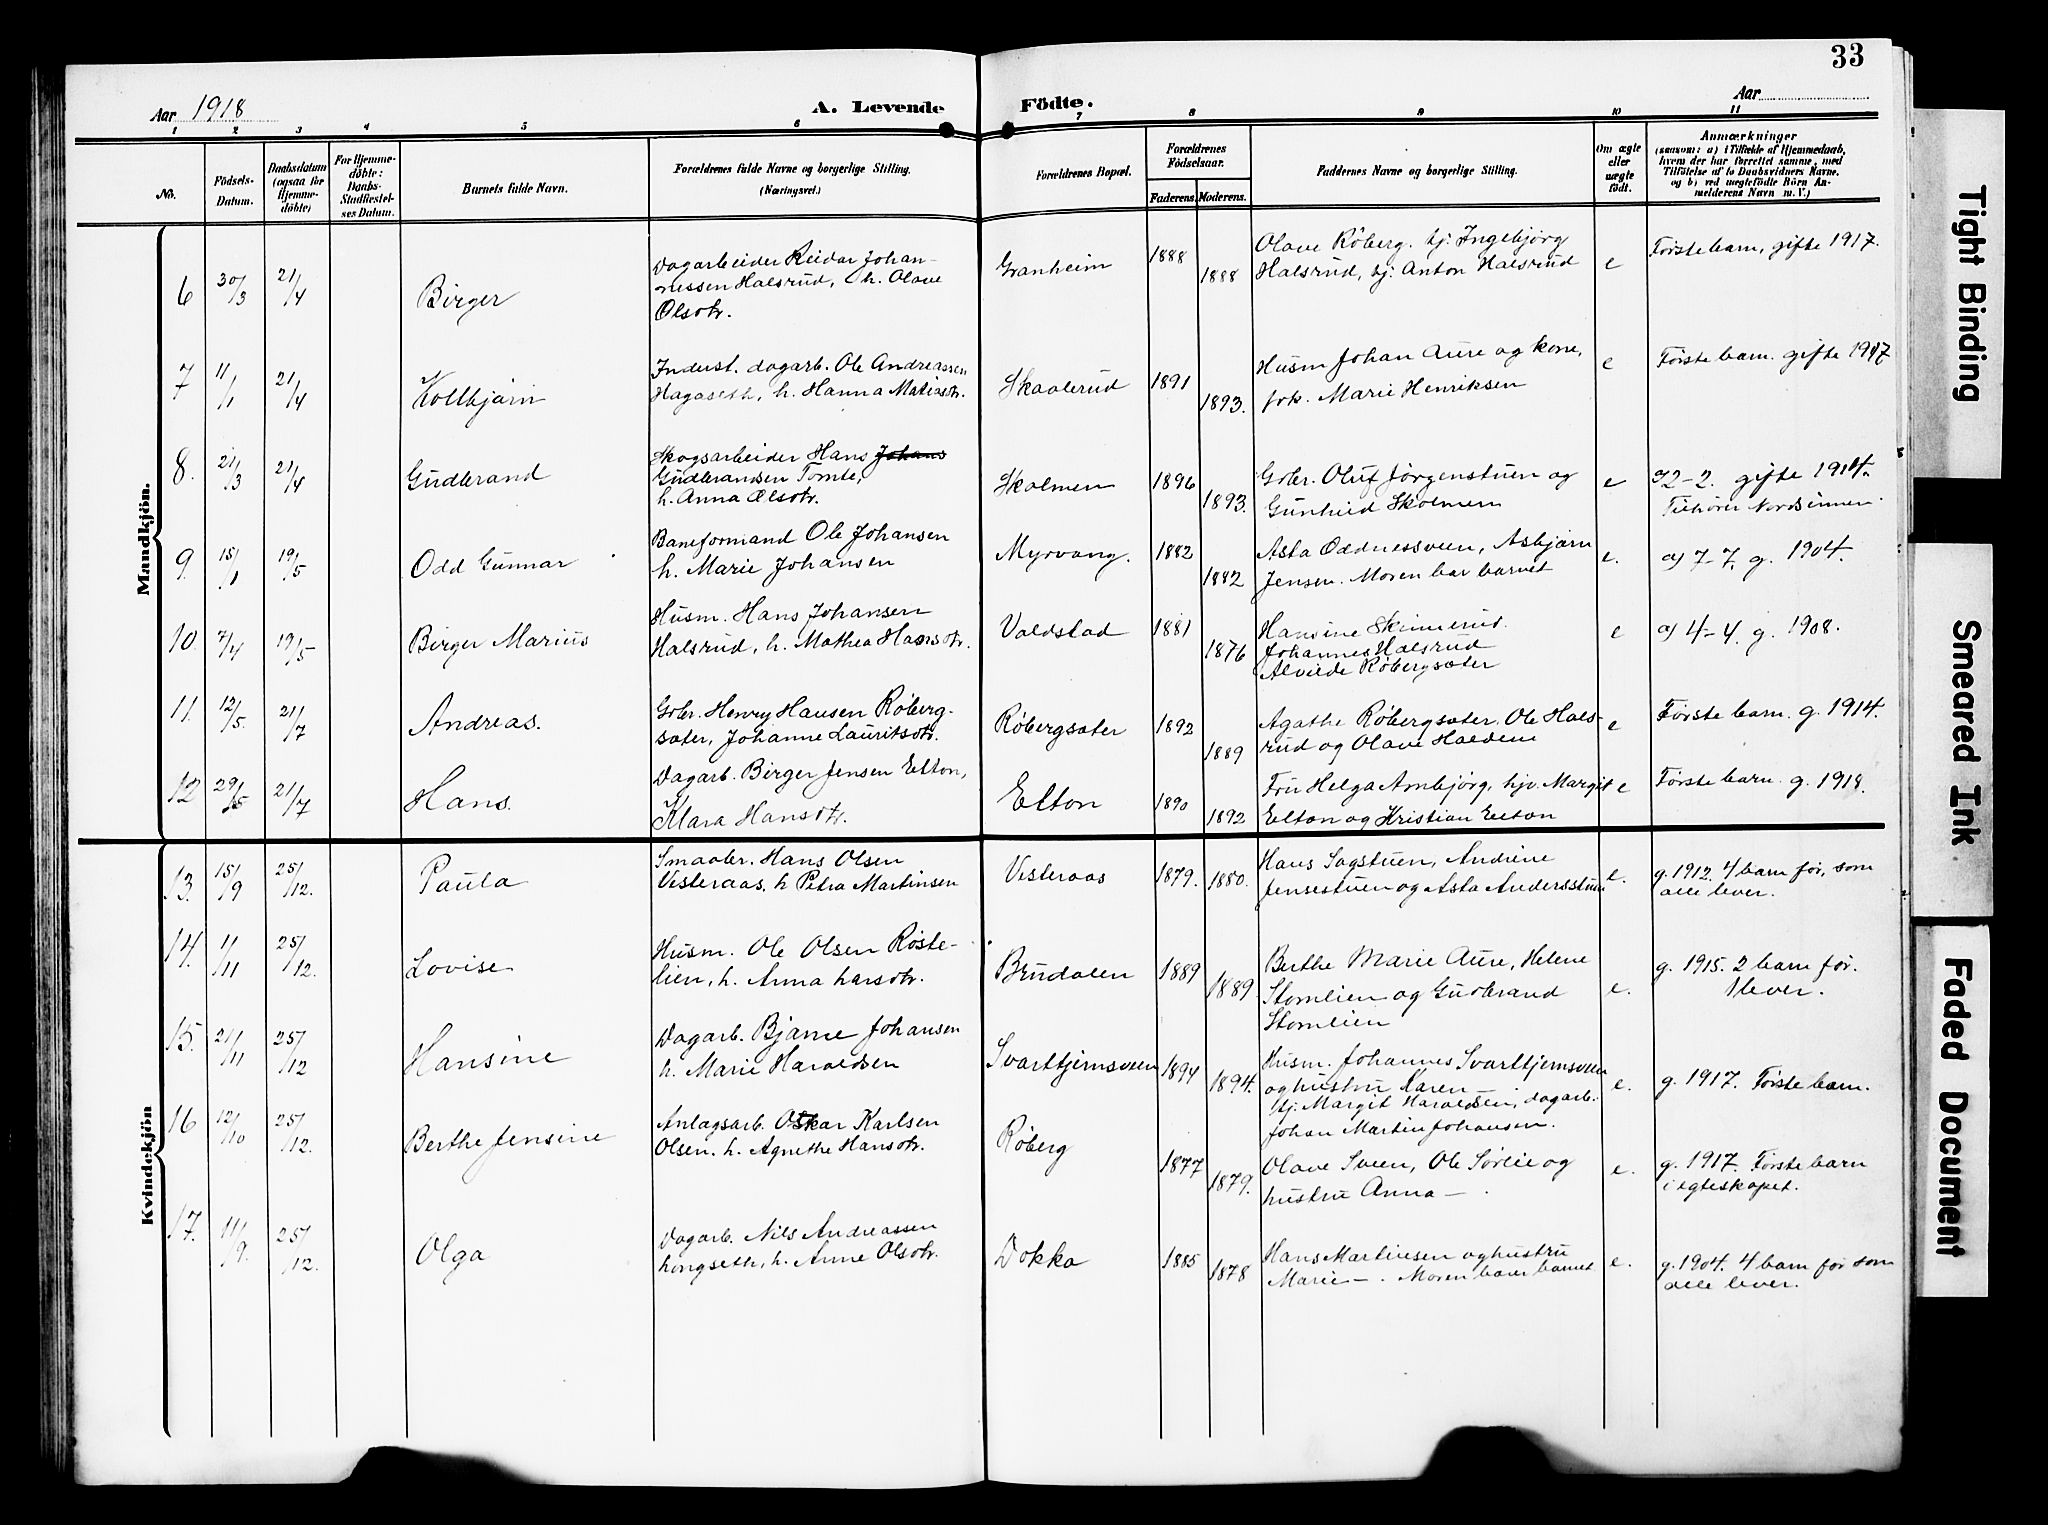 33
Aar 1918
A. Levende
Födte.
Aar
1 2 3 4 5 6 7 8 9 10 11
No.
Födsels-
Datum.
Daabsdatum
(ogsaa for
Hjemme-
döbte)
For Hjemme-
döbte:
Daabs-
Stadfæstel-
ses Datum.
Barnets fulde Navn.
Forældrenes fulde Navne og borgerlige Stilling.
(Næringsvei.)
Forældrenes Bopæl.
Forældrenes
Födselsaar.
Faderens.
Moderens.
Faddernes Navne og borgerlige Stilling.
Om ægte
eller
uægte
födt.
Anmærkninger
(saasom: a) i Tilfælde af Hjemmedaab,
hvem der har forrettet samme, med
Tilföielse af to Daabsvidners Navne,
og b) ved uægtefödte Börn An-
melderens Navn m. V.)
Mandkjön.
6
30/3
21/4
Birger
Dagarbeider Reidar Johan-
nessen Halsrud, h. Olave
Olsdtr.
Granheim
1888
1888
Olave Røberg. hj. Ingebjørg
Halsrud, hj. Anton Halsrud
e
Første barn, gifte 1917.
7
11/1
21/4
Kolbjørn
Indust. dagarb. Ole Andreassen
Hagaseth, h. Hanna Matiasdtr.
Skaalerud
1891
1893.
Husm Johan Aure og kone,
frk. Marie Henriksen
e
Første barn. gifte 1917
8.
21/3
21/4
Gudbrand
Skogsarbeider Hans Johans
Gudbrandsen Tomte,
h. Anna Olsdtr.
Skolmen
1896
1893.
Gbr. Oluf Jørgenstuen og
Gunhild Skolmen
e
2-2. gifte 1914.
Tilhører Nordsinnen.
9.
15/1
19/5
Odd Gunnar
Baneformand Ole Johansen
h. Marie Johansen
Myrvang.
1882
1882
Asta Oddnessveen, Asbjørn
Jensen. Moren bar barnet
e.
a) 7-7. g. 1904.
10.
7/4
19/5
Birger Marius
Husm. Hans Johansen
Halsrud, h. Mathea Hansdtr.
Voldstad
1881
1876
Hansine Skinnerud.
Johannes Halsrud
Alvilde Røbergsæter
e
a) 4-4. g. 1908.
11.
12/5
21/7
Andreas.
Gbr. Henry Hansen Røberg-
sæter, Johanne Lauritsdtr.
Røbergsæter
1892
1889
Agathe Røbergsæter, Ole Hals-
rud og Olave Haldem
e
Første barn. g. 1914.
12
29/5
21/7
Hans.
Dagarb. Birger Jensen Elton,
Klara Hansdtr.
Elton
1890
1892
Fru Helga Arnbjørg, hjv. Margit
Elton og Kristian Elton
e
Første barn. g. 1918.
Kvindekjön
13.
15/9
25/12.
Paula
Smaabr. Hans Olsen
Vesteraas. h Petra Martinsen
Vesteraas
1879.
1880.
Hans Sagstuen, Andrine
Jensestuen og Asta Andersstuen
e.
g. 1912. 4 barn før, som
alle lever.
14.
1/11
25/12.
Lovise
Husm. Ole Olsen Røste-
lien, h. Anna Larsdtr.
Brudalen
1889
1889.
Berthe Marie Aure, Helene
Stomlien og Gudbrand
Stomlien
e.
g. 1915. 2 barn før.
1 lever.
15.
21/11
25/12
Hansine
Dagarb. Bjarne Johansen
h. Marie Haraldsen
Svarttjernsveen
1894
1894.
Husm. Johannes Svarttjernsveen
og hustru Karen —
hj. Margit Haraldsen, dagarb.
Johan Martin Johansen.
e.
g. 1917. Første barn.
16
12/10
25/12.
Berthe Jensine
Anlagsarb. Oskar Karlsen
Olsen. h. Agnethe Hansdtr.
Røberg
1877
1879.
Olave Sveen, Ole Sørlie og
hustru Anna —.
e.
g. 1917. Første barn
i egteskapet.
17.
11/9.
25/12.
Olga
Dagarb. Nils Andreassen
Longseth, h. Anne Olsdtr.
Dokka
1885
1878
Hans Martinsen og hustru
Marie —. Moren baar barnet
e.
g. 1904. 4 barn før som
alle lever.
Tight Binding
Smeared Ink
Faded Document